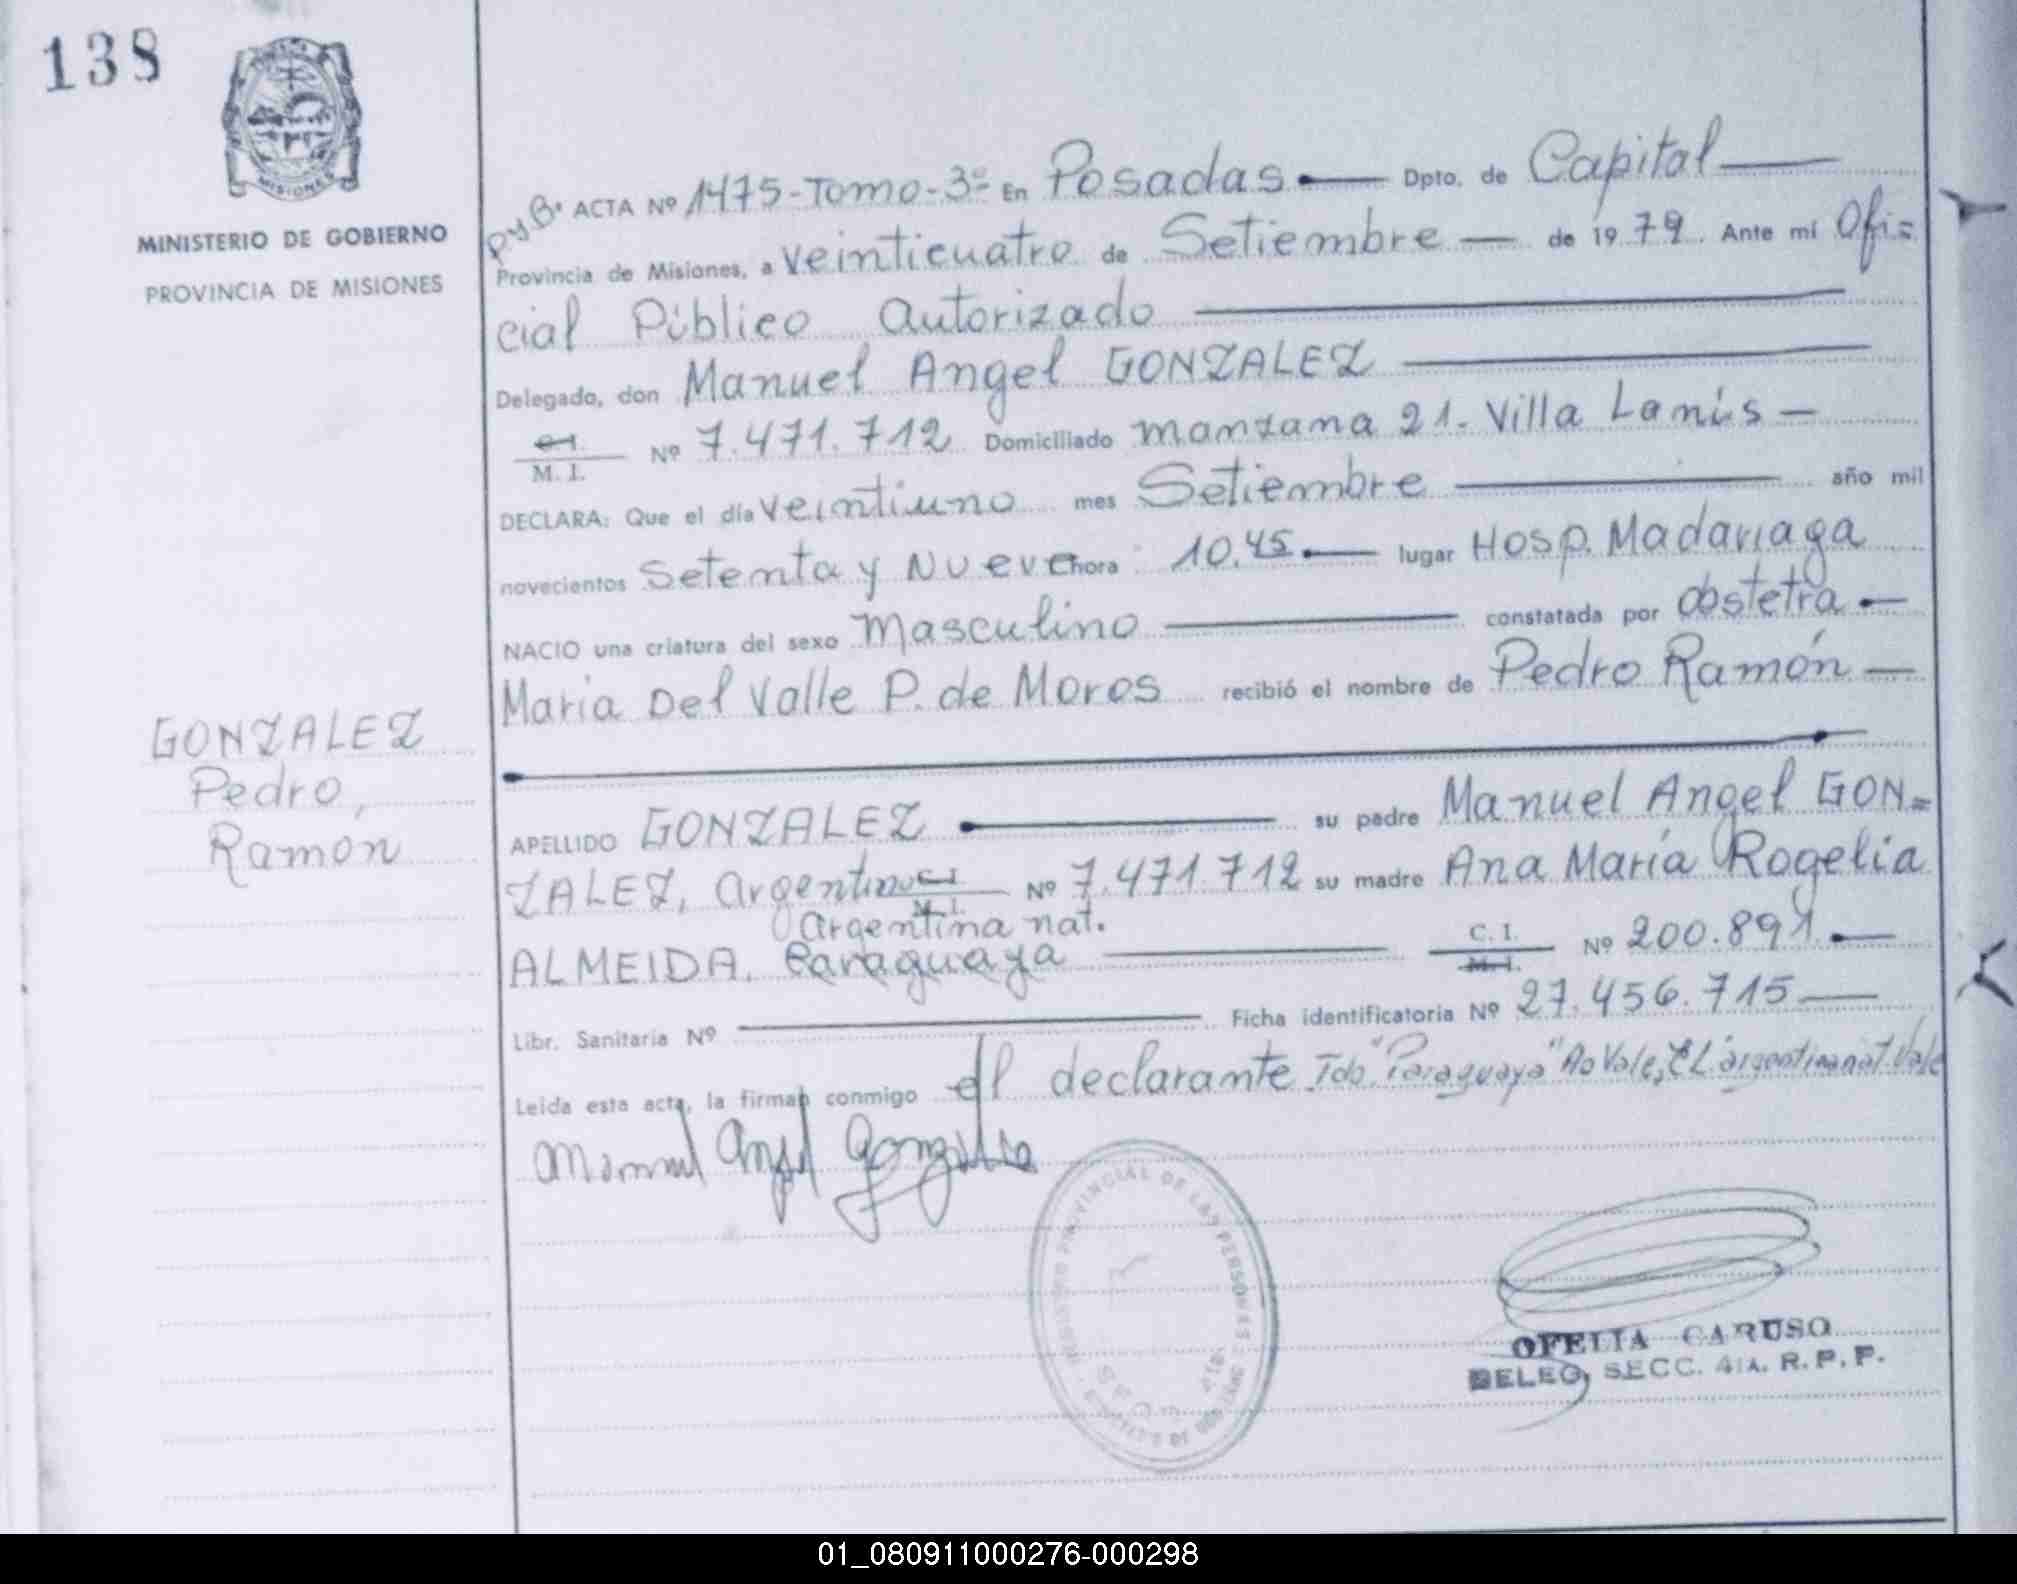 138
MISIONES
MINISTERIO DE GOBIERNO
PROVINCIA DE MISIONES
GONZALEZ
Pedro,
Ramon
P y B. ACTA Nº 1475-Tomo-3º En Posadas Dpto. de Capital
Provincia de Misiones, a veinticuatro de Setiembre de 1979. Ante mí Ofi=
cial Público Autorizado
Delegado, don Manuel Angel GONZALEZ
C.I.
M. I. Nº 7.471.712 Domiciliado manzana 21. Villa Lanús
DECLARA: Que el día veintiuno mes Setiembre año mil
novecientos Setenta y Nueve hora 10.45 lugar Hosp. Madariaga
NACIO una criatura del sexo Masculino constatada por obstetra
Maria Del Valle P. de Moros recibió el nombre de Pedro Ramón
APELLIDO GONZALEZ su padre Manuel Angel GON=
ZALEZ, argentino C.I. M.I. Nº 7.471.712 su madre Ana María Rogelia
argentina nat.
ALMEIDA. Paraguaya C.I. M.I. Nº 200.891
Libr. Sanitaria Nº Ficha identificatoria Nº 27.456.715
Leída esta acta, la firman conmigo el declarante Tdo. "Paraguaya" No Vale, EL argentina nat. Vale
Manuel Angel Gonzalez
REGISTRO PROVINCIAL DE LAS PERSONAS
OFELIA CARUSO
DELEG. SECC. 4ta. R. P. P.
01_080911000276-000298